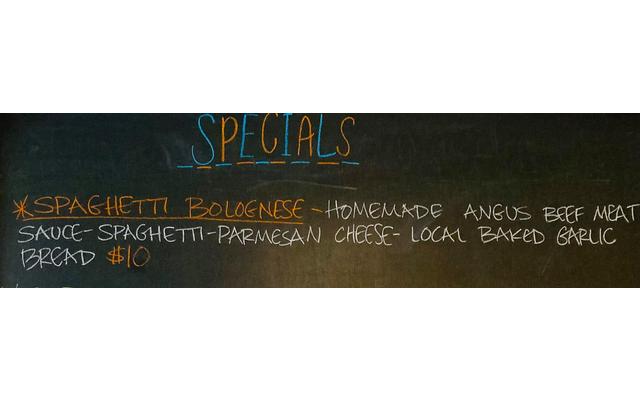 SPECIALS
*SPAGHETTI BOLOGNESE - HOMEMADE ANGUS BEEF MEAT
SAUCE - SPAGHETTI - PARMESAN CHEESE - LOCAL BAKED GARLIC
BREAD $10